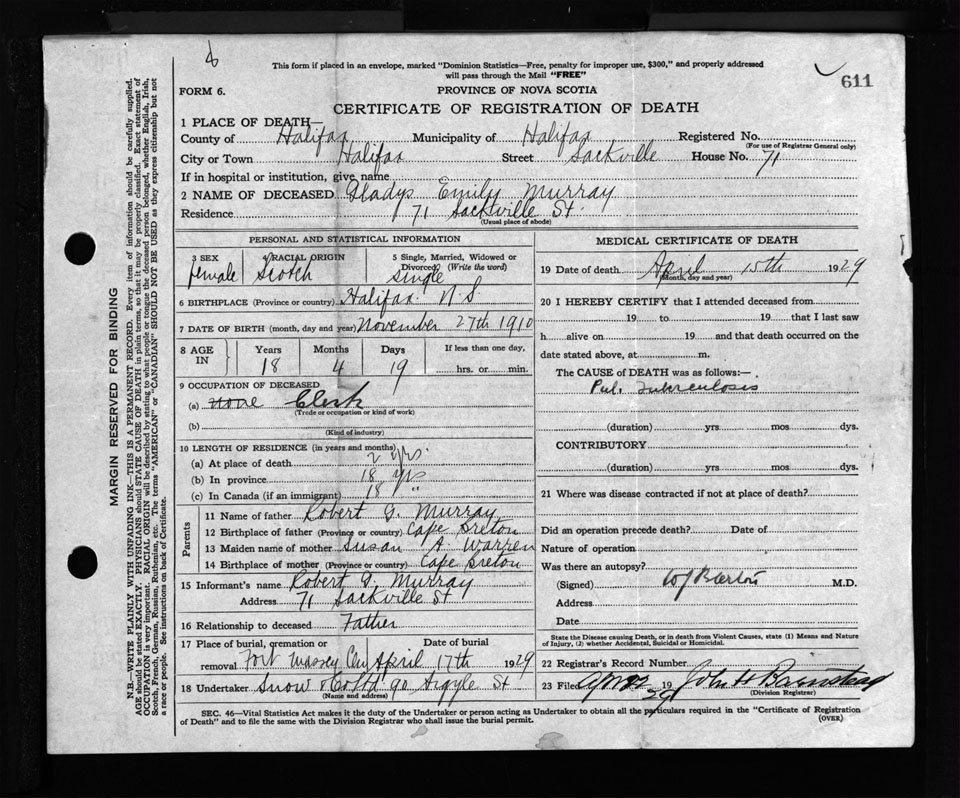 This form if placed in an envelope, marked "Dominion Statistics—Free, penalty for improper use, $300," and properly addressed
will pass through the Mail "FREE"
611
FORM 6.
PROVINCE OF NOVA SCOTIA
CERTIFICATE OF REGISTRATION OF DEATH
1 PLACE OF DEATH—
County of Halifax Municipality of Halifax Registered No.
(For use of Registrar General only)
City or Town Halifax Street Sackville House No. 71
If in hospital or institution, give name
2 NAME OF DECEASED Gladys Emily Murray
Residence 71 Sackville St
(Usual place of abode)
PERSONAL AND STATISTICAL INFORMATION
3 SEX 4 RACIAL ORIGIN 5 Single, Married, Widowed or Divorced (Write the word)
female Scotch Single
6 BIRTHPLACE (Province or country) Halifax N.S
7 DATE OF BIRTH (month, day and year) November 27th 1910
8 AGE IN Years Months Days If less than one day,
18 4 19 hrs. or min.
9 OCCUPATION OF DECEASED
(a) none Clerk
(Trade or occupation or kind of work)
(b)
(Kind of industry)
10 LENGTH OF RESIDENCE (in years and months)
(a) At place of death 2 yrs.
(b) In province 18 yrs
(c) In Canada (if an immigrant) 18 "
Parents
11 Name of father Robert G. Murray
12 Birthplace of father (Province or country) Cape Breton
13 Maiden name of mother Susan A. Warren
14 Birthplace of mother (Province or country) Cape Breton
15 Informant's name Robert G. Murray
Address 71 Sackville St
16 Relationship to deceased Father
17 Place of burial, cremation or Date of burial
removal Fort Massey Cem April 17th 1929
18 Undertaker Snow & Co Ltd 90 Argyle St
(Name and address)
MEDICAL CERTIFICATE OF DEATH
19 Date of death April 15th 1929
(Month, day and year)
20 I HEREBY CERTIFY that I attended deceased from
19 to 19 that I last saw
h alive on 19 and that death occurred on the
date stated above, at m.
The CAUSE of DEATH was as follows:—
Pul. Tuberculosis
(duration) yrs mos dys.
CONTRIBUTORY
(duration) yrs. mos. dys.
21 Where was disease contracted if not at place of death?
Did an operation precede death? Date of
Nature of operation
Was there an autopsy?
(Signed) M.D.
Address
Date
State the Disease causing Death, or in death from Violent Causes, state (1) Means and Nature
of Injury, (2) whether Accidental, Suicidal or Homicidal.
22 Registrar's Record Number
23 Filed 19 29 John H Barnstead
(Division Registrar)
SEC. 46—Vital Statistics Act makes it the duty of the Undertaker or person acting as Undertaker to obtain all the particulars required in the "Certificate of Registration
of Death" and to file the same with the Division Registrar who shall issue the burial permit.
(OVER)
MARGIN RESERVED FOR BINDING
N.B. WRITE PLAINLY WITH UNFADING INK—THIS IS A PERMANENT RECORD. Every item of information should be carefully supplied.
AGE should be stated EXACTLY. PHYSICIANS should STATE CAUSE OF DEATH in plain terms, so that it may be properly classified. Exact statement of
OCCUPATION is very important. RACIAL ORIGIN will be described by stating to what people or tongue the deceased person belonged, whether English, Irish,
Scotch, French, German, Russian, Ruthenian, etc. The terms "AMERICAN" or "CANADIAN" SHOULD NOT BE USED as they express citizenship but not
a race or people. See instructions on back of Certificate.